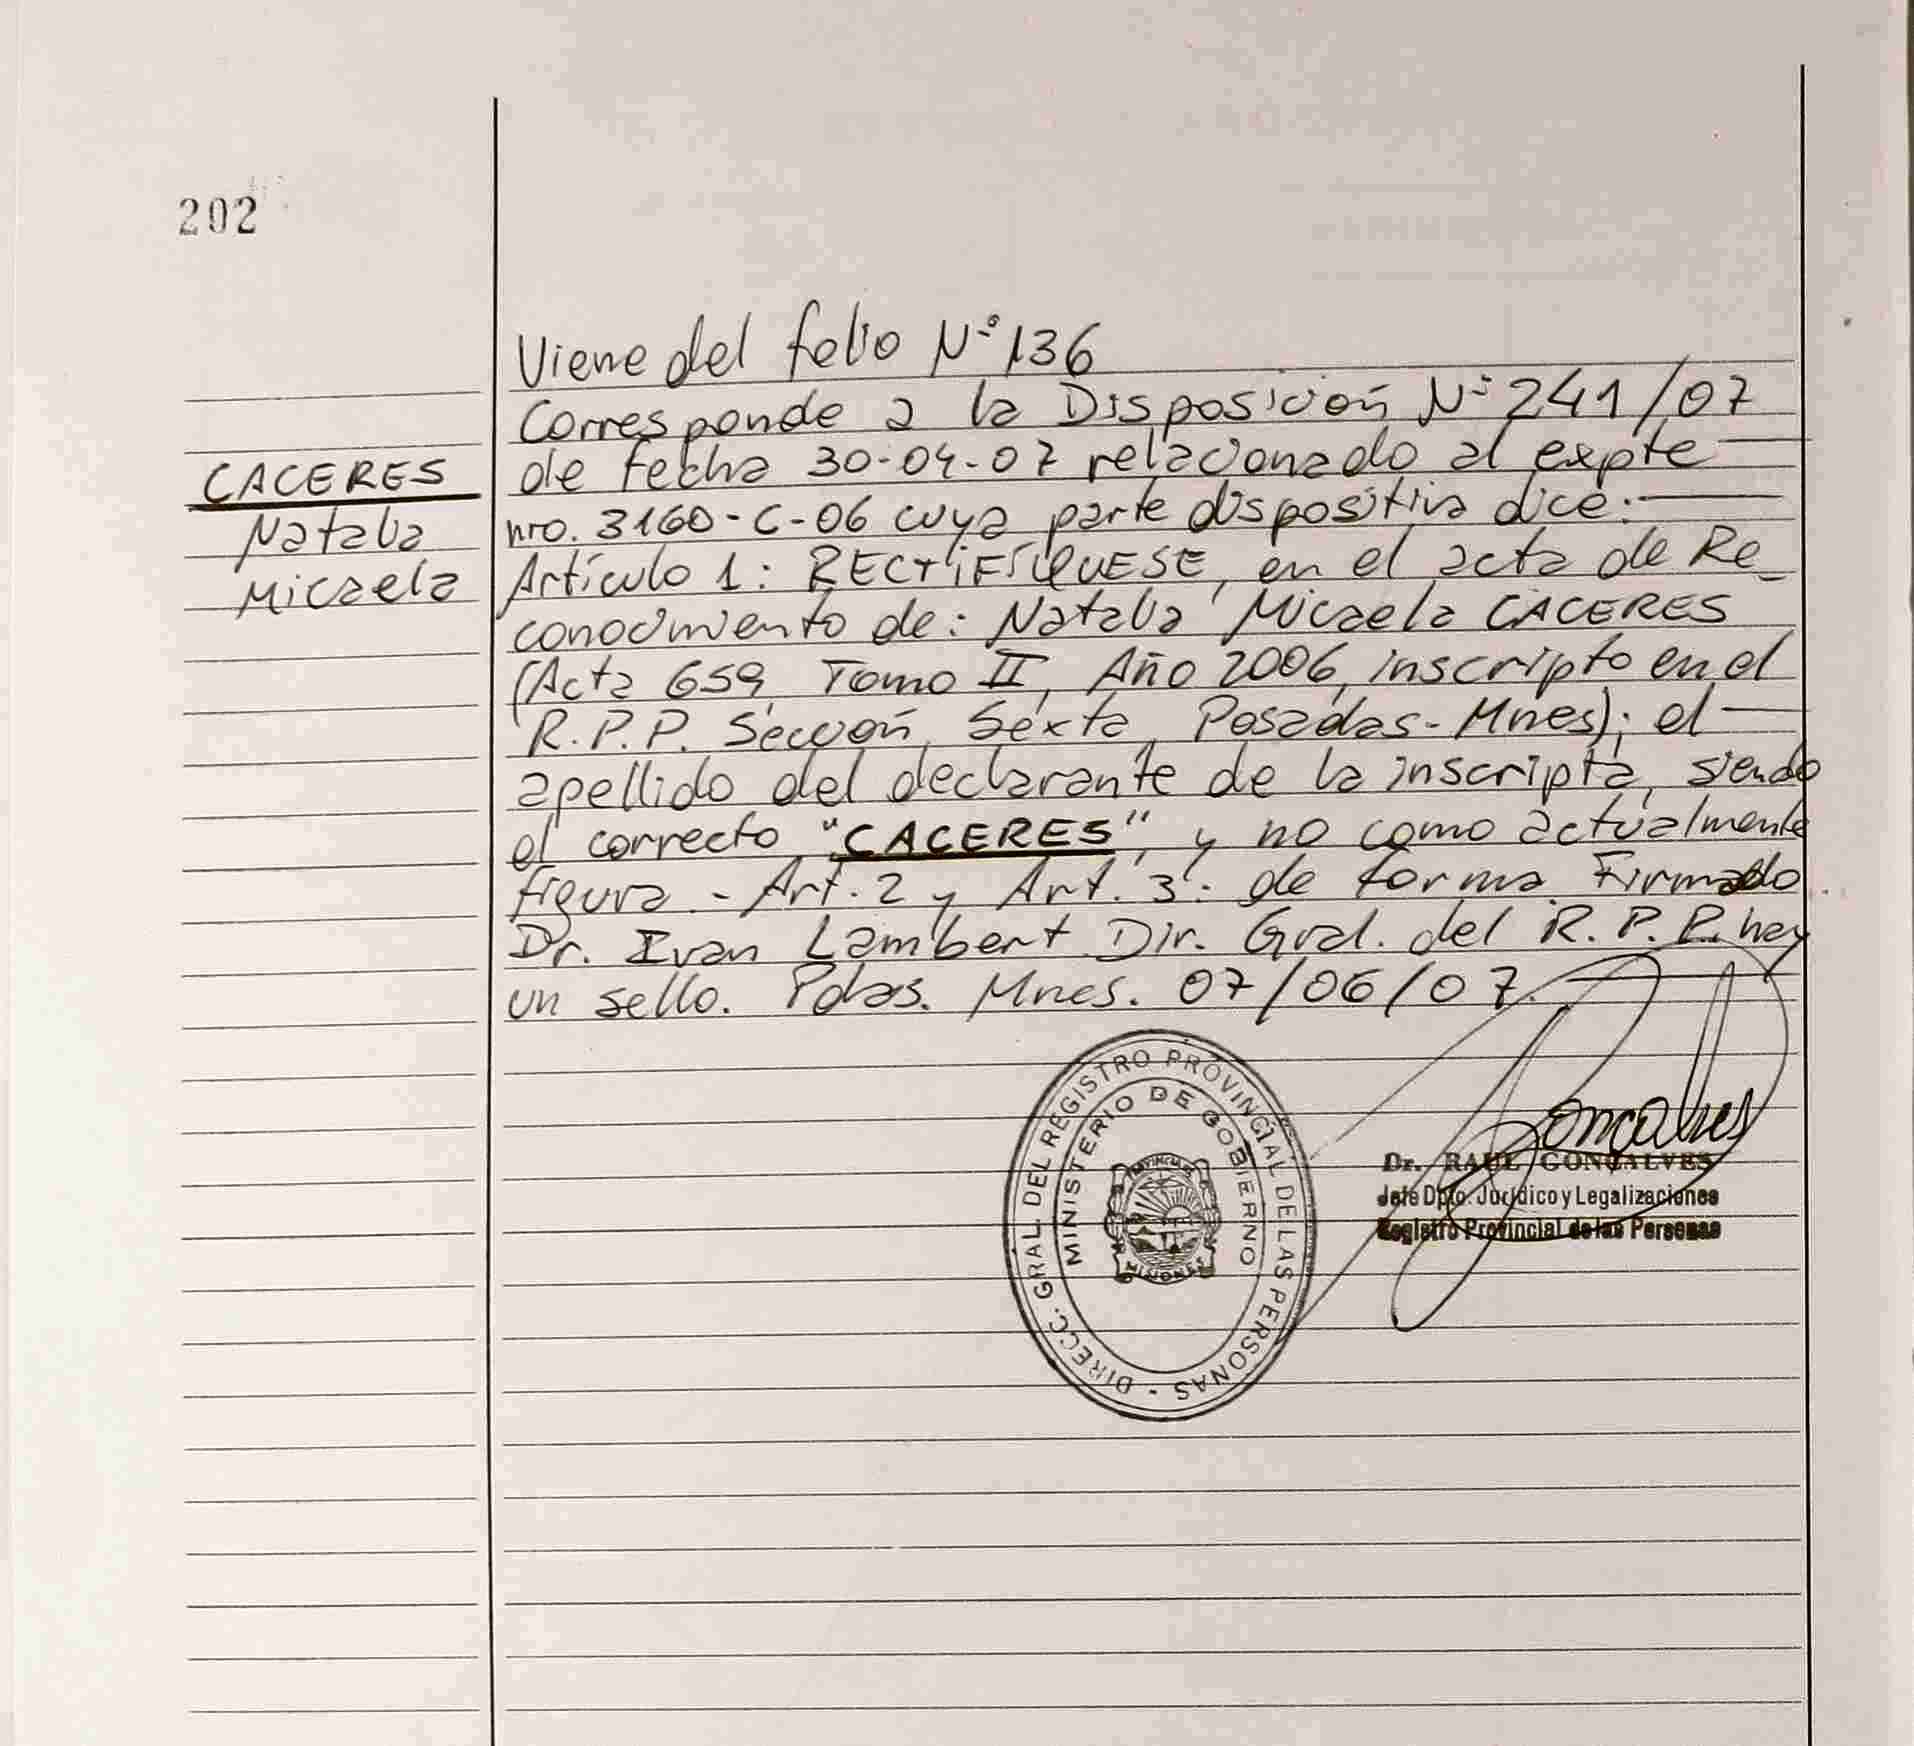 202
CACERES
Natalia
Micaela
Viene del folio N° 136
Corresponde a la Disposición N° 241/07
de fecha 30-04-07 relacionado al expte
nro. 3160-C-06 cuya parte dispositiva dice:
Artículo 1: RECTIFÍQUESE, en el acta de Re_
conocimiento de: Natalia Micaela CACERES
(Acta 659, Tomo II, Año 2006, inscripto en el
R.P.P. Sección Sexta, Posadas-Mnes); el
apellido del declarante de la inscripta, siendo
el correcto "CACERES", y no como actualmente
figura.- Art. 2 y Art. 3: de forma Firmado
Dr. Ivan Lambert Dir. Gral. del R.P.P. hay
un sello. Pdas. Mnes. 07/06/07.
DIRECC. GRAL. DEL REGISTRO PROVINCIAL DE LAS PERSONAS -
MINISTERIO DE GOBIERNO
PROVINCIA DE
MISIONES
Goncalves
Dr. RAUL GONÇALVES
Jefe Dpto. Jurídico y Legalizaciones
Registro Provincial de las Personas